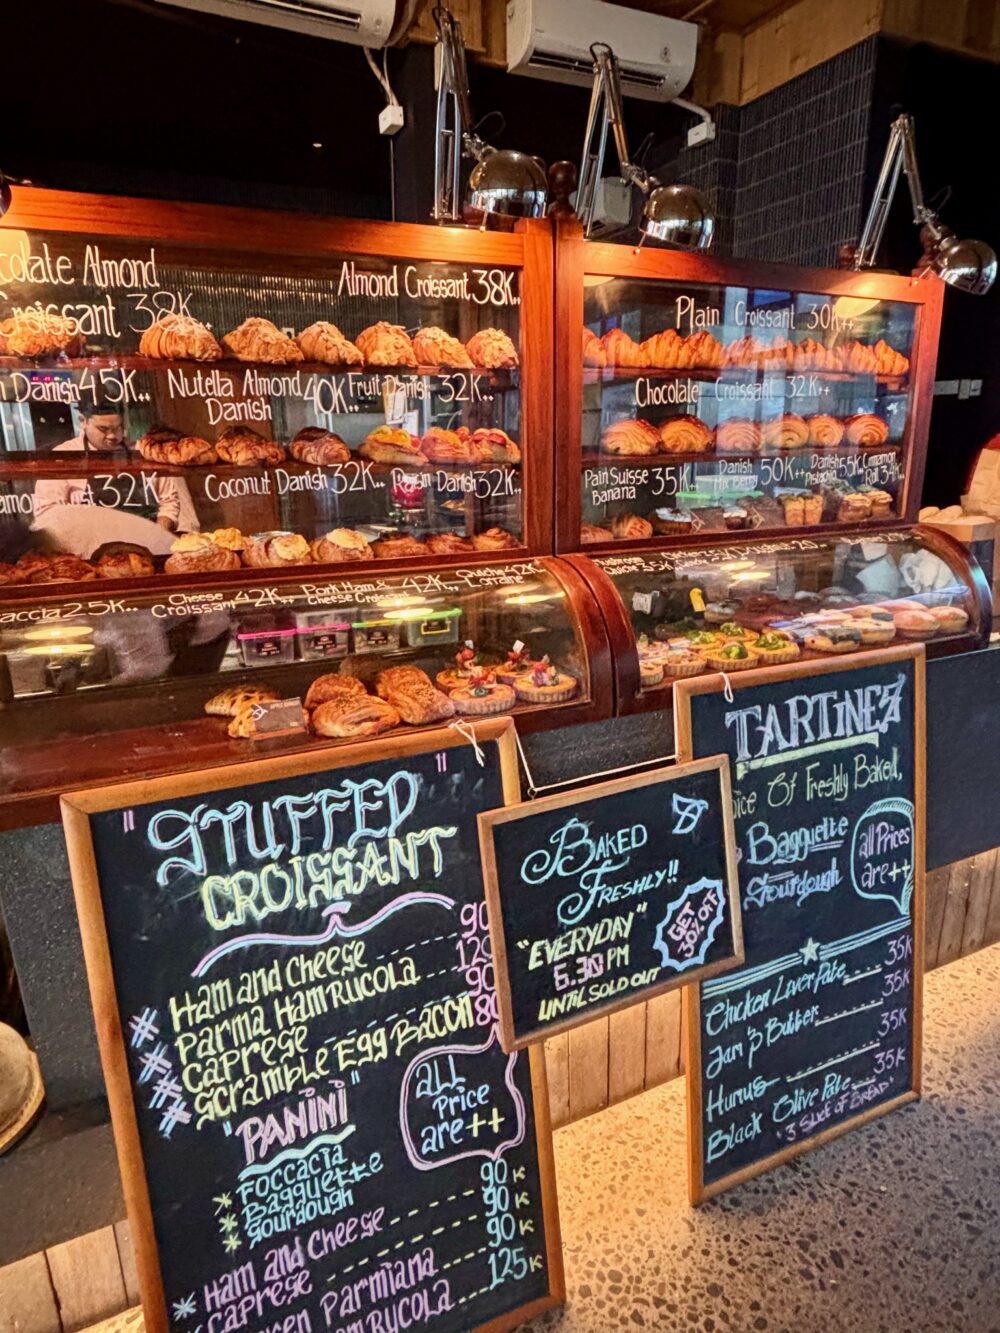 colate Almond
Croissant 38K..
Almond Croissant 38K..
Danish 45K..
Nutella Almond
Danish
40K..
Fruit Danish 32K..
32K..
Coconut Danish 32K..
Danish 32K..
accia 25K..
Cheese
Croissant 42K..
Pork Ham &
Cheese Croissant 42K..
Quiche
Lorraine 42K..
Plain Croissant 30K++
Chocolate Croissant 32K++
Pain Suisse
Banana 35K..
Danish
Mix Berry 50K++
Danish
Pistachio 55K
Cinnamon
Roll 34K
Quiche 35K
"STUFFED"
CROISSANT
Ham and Cheese 90
Parma Ham Rucola 120
Caprese 90
Scramble Egg Bacon 80
ALL
Price
are++
"PANINI"
Foccacia
Bagguette
Sourdough
Ham and Cheese 90K
Caprese 90K
ken Parmiana 90K
am Rucola 125K
BAKED
FRESHLY!!
"EVERYDAY"
6.30 PM
UNTIL SOLD OUT
GET
30% OFF
TARTINEZ
oice Of Freshly Baked,
Bagguette
Sourdough
all Prices
are++
Chicken Liver Pate 35K
Jam 'p Butter 35K
Humus 35K
Black Olive Pate 35K
"3 SLICE OF BREAD"